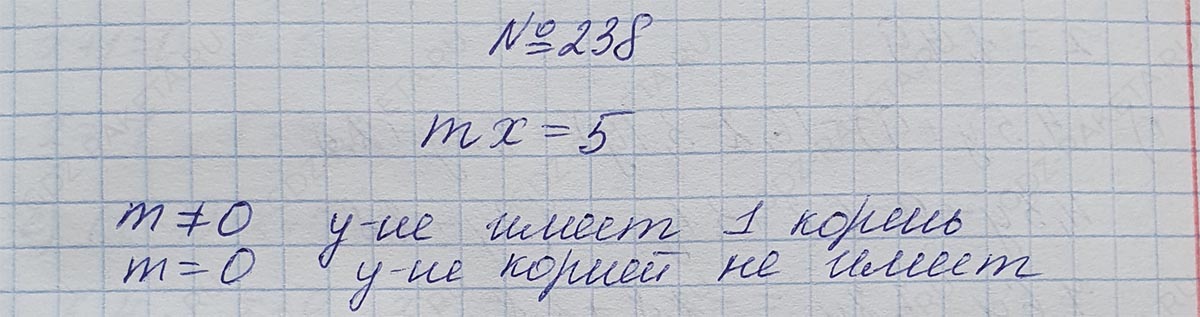 №238
mx = 5
m ≠ 0 у-ие имеет 1 корень
m = 0 у-ие корней не имеет